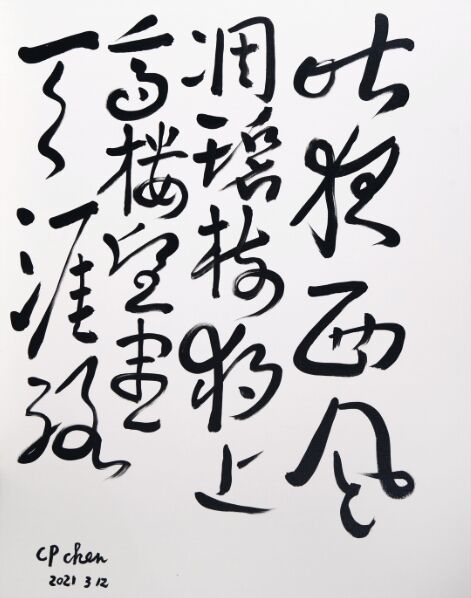 昨夜西风
凋碧树独上
高楼望尽
天涯路
CP chen
2021 3 12